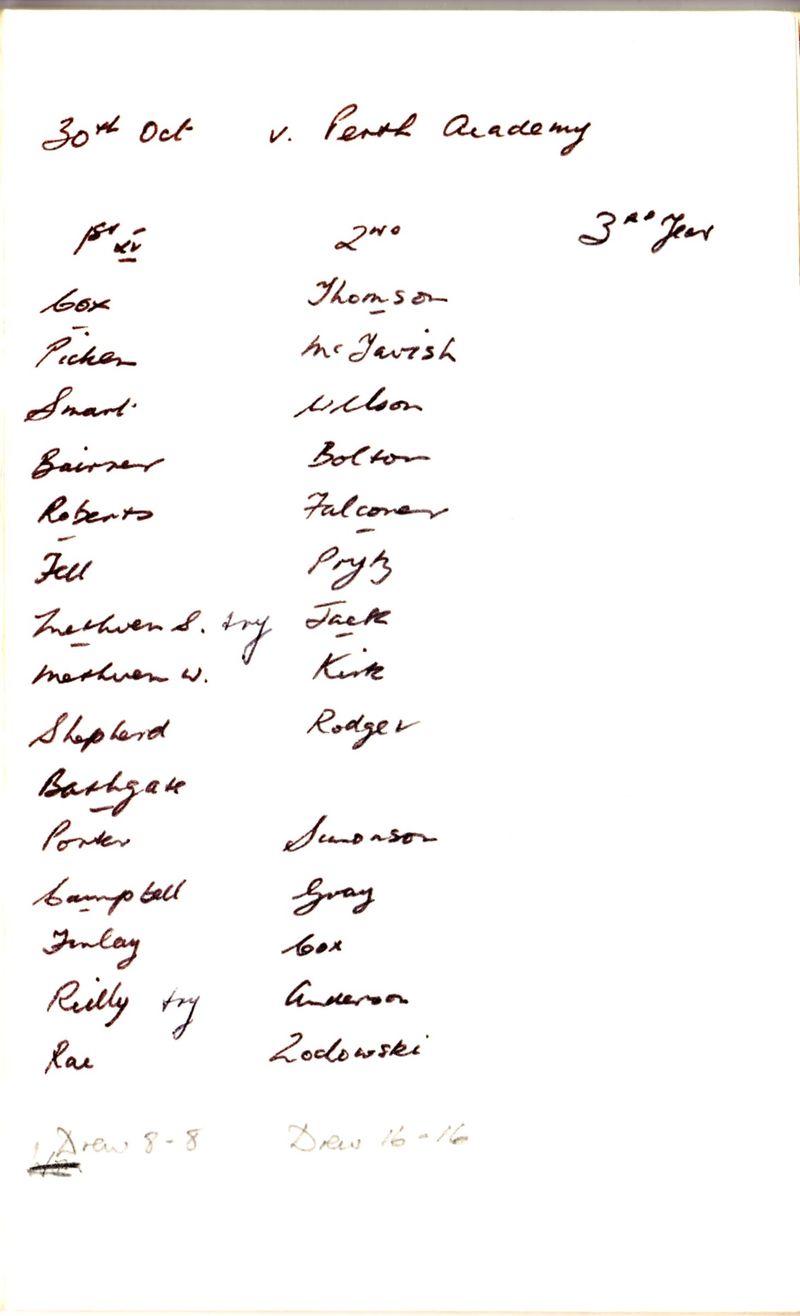 30th Oct v. Perth Academy
1st XV 2nd 3rd Year
Cox Thomson
Picken McTavish
Smart Wilson
Bairner Bolton
Roberts Falconer
Fell Prytz
Methven S. try Jack
Methven W. Kirk
Shepherd Rodger
Bathgate
Porter Simonson
Campbell Gray
Finlay Cox
Reilly try Anderson
Rae Zodowski
Drew 8-8 Drew 16-16